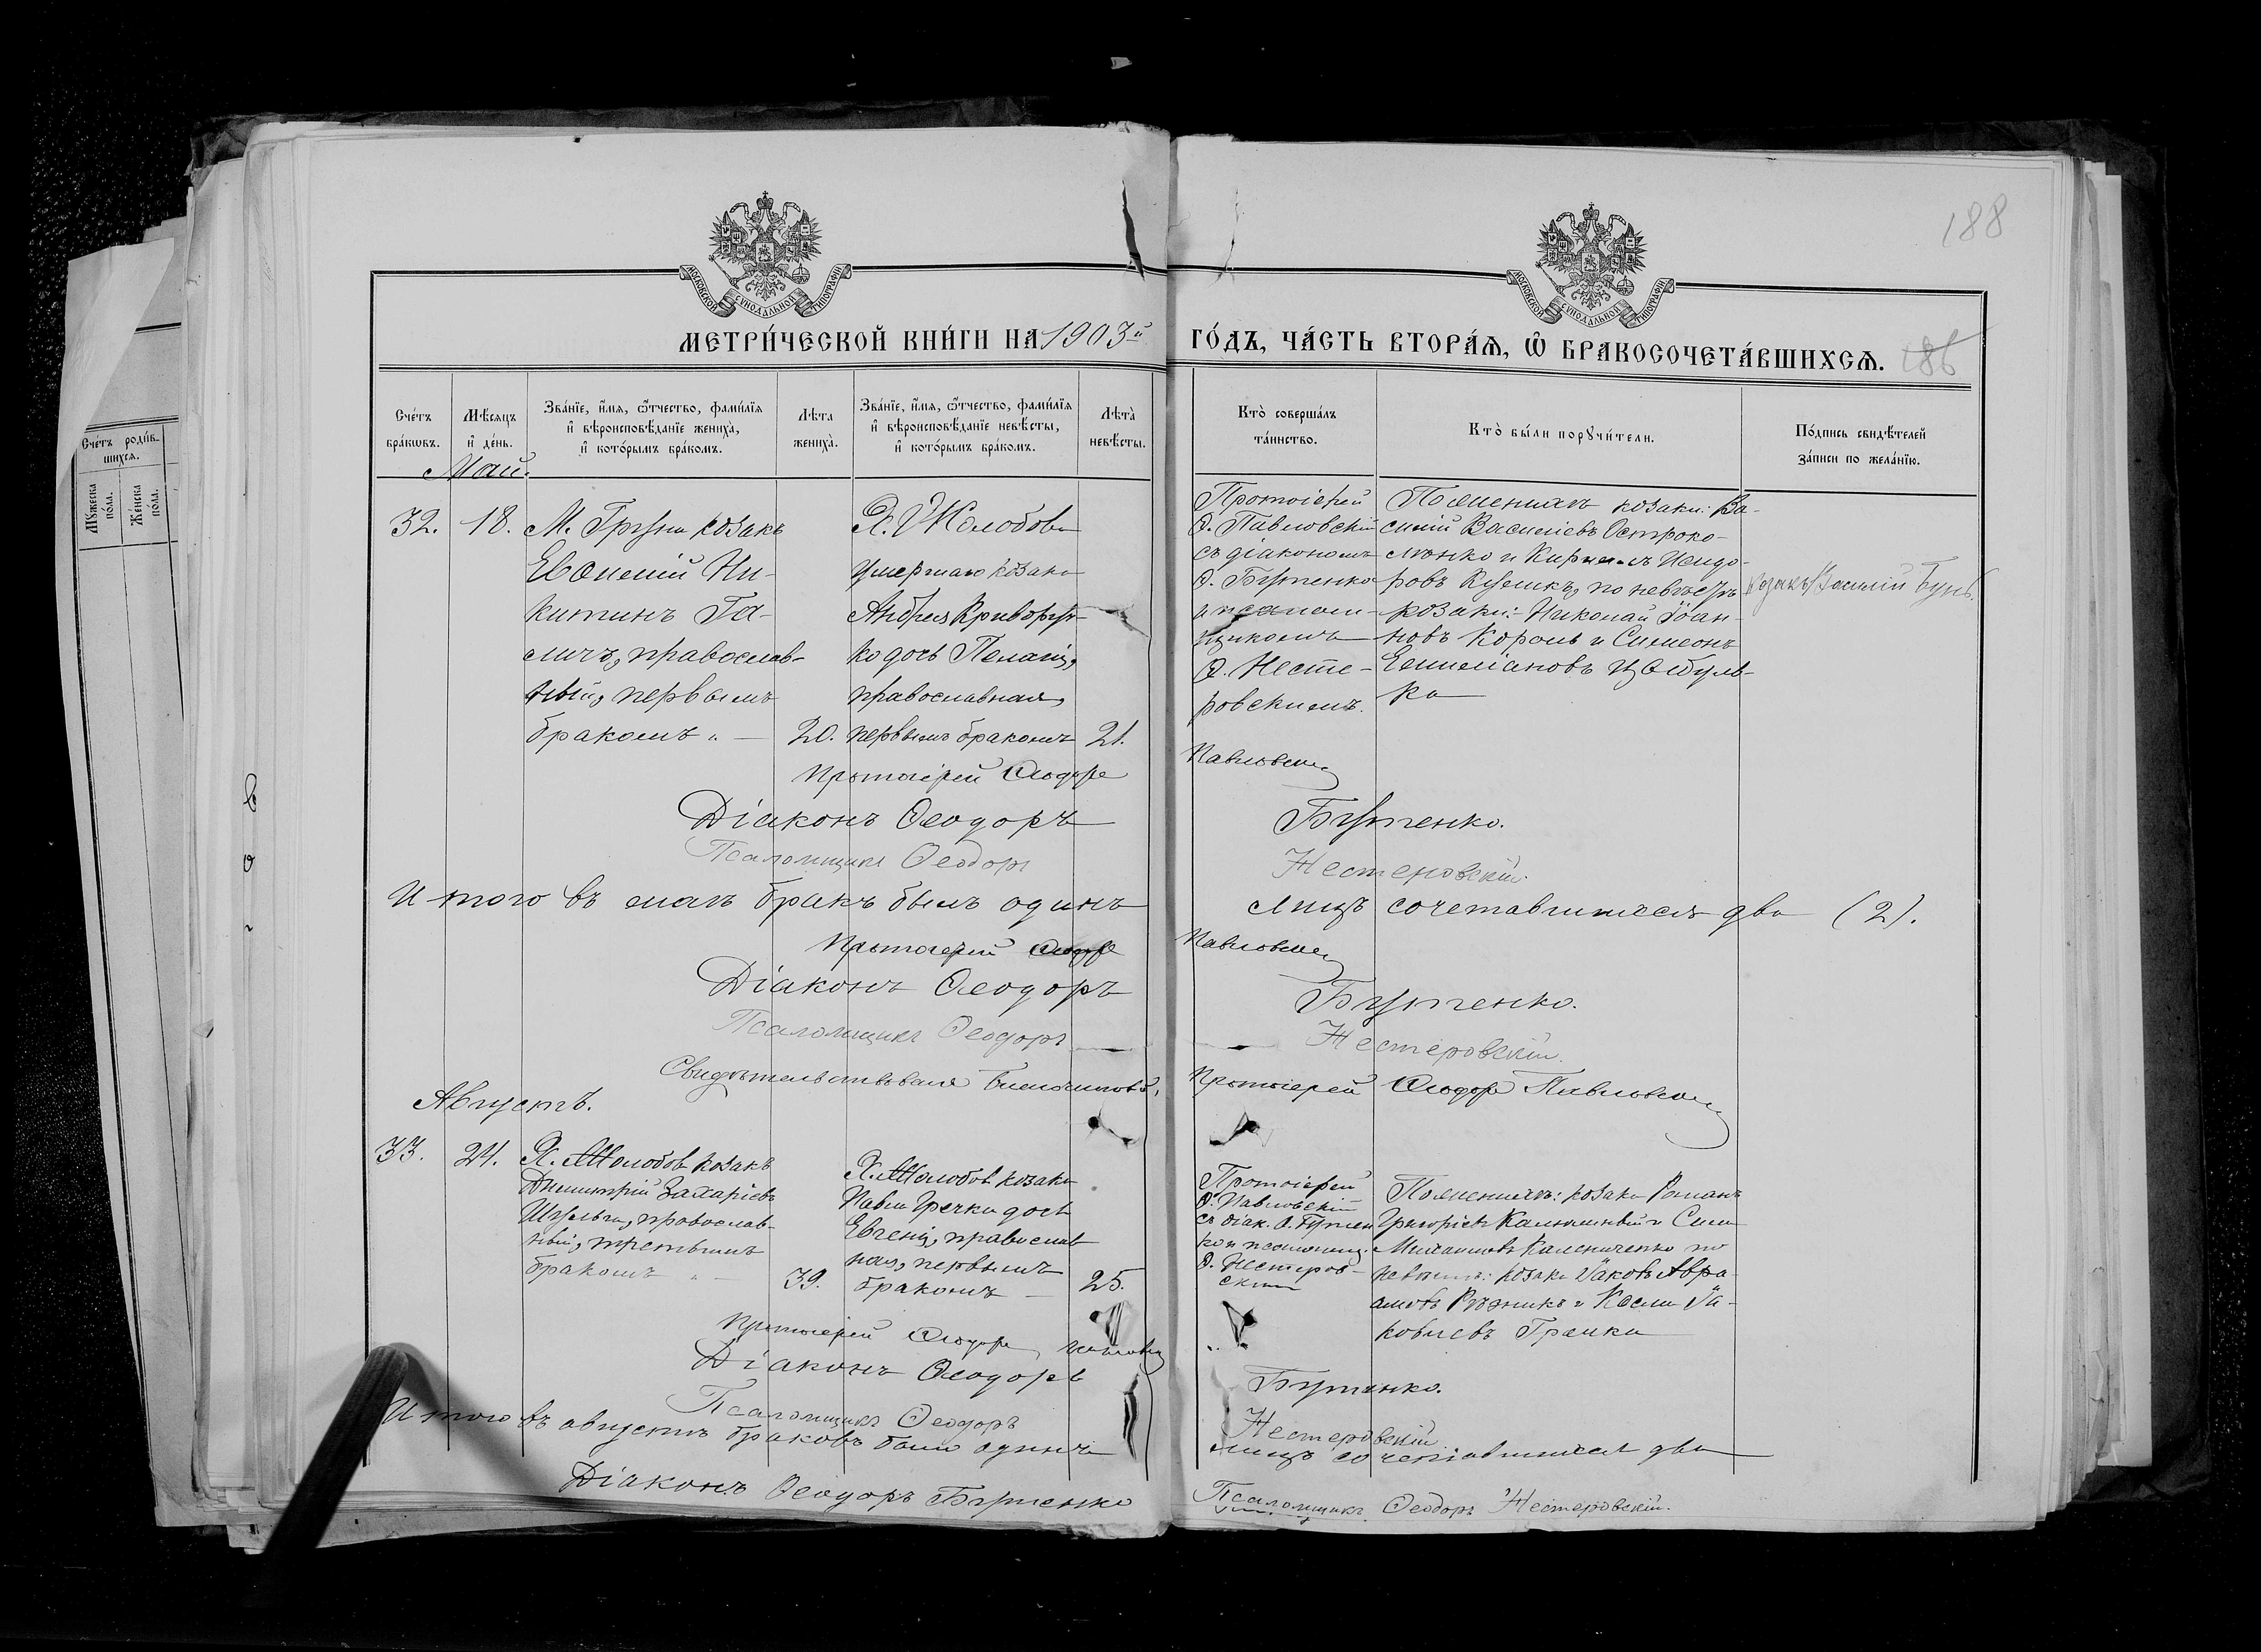 188
МЕТРИ́ЧЕСКОЙ КНИ́ГИ НА 1903й ГО́ДЪ, ЧА́СТЬ ВТОРА́Ѧ, Ѡ҆ БРАКОСОЧЕТА́ВШИХСѦ. 186
МОСКОВСКОЙ СѴНОДАЛЬНОЙ ТИПОГРАФІИ
МОСКОВСКОЙ СѴНОДАЛЬНОЙ ТИПОГРАФІИ
Сче́тъ бра́кѡвъ.
Мѣ́сяцъ и҆ де́нь.
Зва́нїе, и҆́мѧ, ѻ҆́тчество, фами́лїѧ и҆ вѣроисповѣ́данїе жениха̀, и҆ кото́рымъ бра́комъ.
Лѣ́та жениха̀.
Зва́нїе, и҆́мѧ, ѻ҆́тчество, фами́лїѧ и҆ вѣроисповѣ́данїе невѣ́сты, и҆ кото́рымъ бра́комъ.
Лѣ́та невѣ́сты.
Кто̀ соверша́лъ та́инство.
Кто̀ бы́ли порꙋчи́тели.
По́дпись свидѣ́телей за́писи по жела́нїю.
Сче́тъ роди́в-
шихсѧ.
Мꙋ́жеска по́ла.
Же́нска по́ла.
Май.
32. 18.
М. Груни козакъ
Ни-
китинъ Га-
личъ, православ-
ный, первымъ
бракомъ „ — 20.
Х. Жолобова
умершаго козака
Андрея Криворуч-
ко дочь Пелагія,
православная,
первымъ бракомъ 21.
Протоіерей
Ѳ. Павловскій
съ діакономъ
Ѳ. Бутенко
и псалом-
щикомъ
Ѳ. Несте-
ровскимъ.
По женихѣ козаки: Ва-
силій Василіевъ Остроко-
лѣнко и Кириллъ Исидо-
ровъ Куликъ, по невѣстѣ
козаки:- Николай Іоан-
новъ Король и Симеонъ
Емиліановъ Цыбуль-
ка
Козакъ Василій
Протоіерей Ѳеодоръ Павловскій
Діаконъ Ѳеодоръ Бутенко.
Псаломщикъ Ѳеодоръ Нестеровскій.
Итого въ маѣ бракъ былъ одинъ лицъ сочетавшихся два (2).
Протоіерей Ѳеодоръ Павловскій
Діаконъ Ѳеодоръ Бутенко.
Псаломщикъ Ѳеодоръ Нестеровскій.
Свидѣтельствовалъ Благочинный, Протоіерей Ѳеодоръ Павловскій
Августъ.
33. 24.
Х. Жолобовъ козакъ
Димитрій Захаріевъ
Шульга, православ-
ный, третьимъ
бракомъ „ — 39.
Х. Жолобовъ козака
Павла Гречки дочь
Евгенія, православ
ная, первымъ
бракомъ — 25.
Протоіерей
Ѳ. Павловскій
съ діак. Ѳ. Бутен
ко и псаломщ.
Ѳ. Нестеров-
скимъ
По женихѣ: козаки Романъ
Григоріевъ и
Михаиловъ Калениченко по
невѣстѣ: козаки Іаковъ Авра
амовъ Рѣзникъ и Косма Іа-
ковлевъ
Протоіерей Ѳеодоръ Павловскій
Діаконъ Ѳеодоръ Бутенко.
Псаломщикъ Ѳеодоръ Нестеровскій
Итого въ августѣ браковъ было одинъ лицъ сочетавшихся два
Діаконъ Ѳеодоръ Бутенко
Псаломщикъ Ѳеодоръ Нестеровскій.